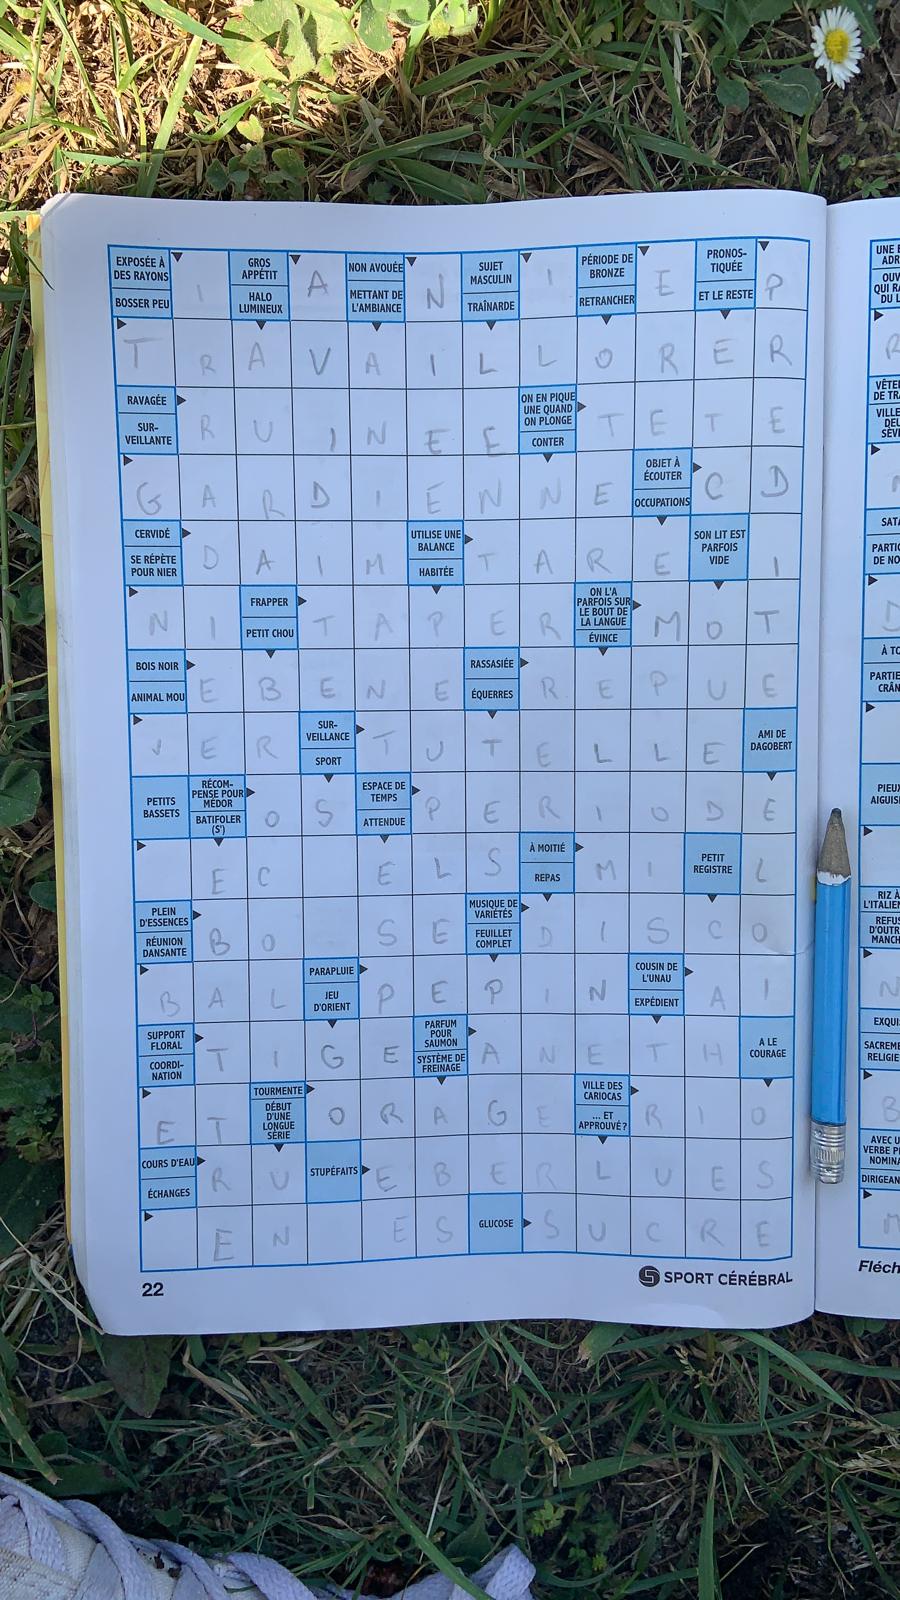 EXPOSÉE À DES RAYONS
BOSSER PEU
I
GROS APPÉTIT
HALO LUMINEUX
A
NON AVOUÉE
METTANT DE L'AMBIANCE
N
SUJET MASCULIN
TRAÎNARDE
I
PÉRIODE DE BRONZE
RETRANCHER
E
PRONOS-TIQUÉE
ET LE RESTE
P
T R A V A I L L O R E R
RAVAGÉE
SUR-VEILLANTE
R U I N E E
ON EN PIQUE UNE QUAND ON PLONGE
CONTER
T E T E
G A R D I E N N E
OBJET À ÉCOUTER
OCCUPATIONS
C D
CERVIDÉ
SE RÉPÈTE POUR NIER
D A I M
UTILISE UNE BALANCE
HABITÉE
T A R E
SON LIT EST PARFOIS VIDE
I
N I
FRAPPER
PETIT CHOU
T A P E R
ON L'A PARFOIS SUR LE BOUT DE LA LANGUE
ÉVINCE
M O T
BOIS NOIR
ANIMAL MOU
E B E N E
RASSASIÉE
ÉQUERRES
R E P U E
V E R
SUR-VEILLANCE
SPORT
T U T E L L E
AMI DE DAGOBERT
PETITS BASSETS
RÉCOM-PENSE POUR MÉDOR
BATIFOLER (S')
O S
ESPACE DE TEMPS
ATTENDUE
P E R I O D E
E C E L S
À MOITIÉ
REPAS
M I
PETIT REGISTRE
L
PLEIN D'ESSENCES
RÉUNION DANSANTE
B O S E
MUSIQUE DE VARIÉTÉS
FEUILLET COMPLET
D I S C O
B A L
PARAPLUIE
JEU D'ORIENT
P E P I N
COUSIN DE L'UNAU
EXPÉDIENT
A I
SUPPORT FLORAL
COORDI-NATION
T I G E
PARFUM POUR SAUMON
SYSTÈME DE FREINAGE
A N E T H
A LE COURAGE
E T
TOURMENTE
DÉBUT D'UNE LONGUE SÉRIE
O R A G E
VILLE DES CARIOCAS
... ET APPROUVÉ ?
R I O
COURS D'EAU
ÉCHANGES
R U
STUPÉFAITS
E B E R L U E S
E N E S
GLUCOSE
S U C R E
22
SPORT CÉRÉBRAL
Fléch